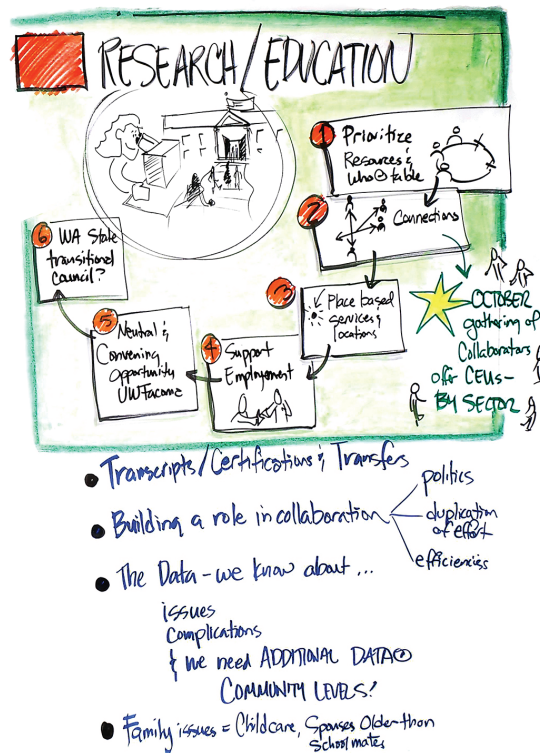 RESEARCH/EDUCATION
1 Prioritize
Resources &
who @ table
2 Connections
3 Place based
services &
locations
4 Support
Employment
5 Neutral &
Convening
Opportunity
UWTacoma
6 WA State
transitional
council?
OCTOBER
gathering of
Collaborators
offer CEUs-
BY SECTOR
Transcripts/Certifications & Transfers
Building a role in collaboration
politics
duplication
of effort
efficiencies
The Data - we know about...
issues
complications
& we need ADDITIONAL DATA @
COMMUNITY LEVELS!
Family issues = Childcare, Spouses Older than
schoolmates